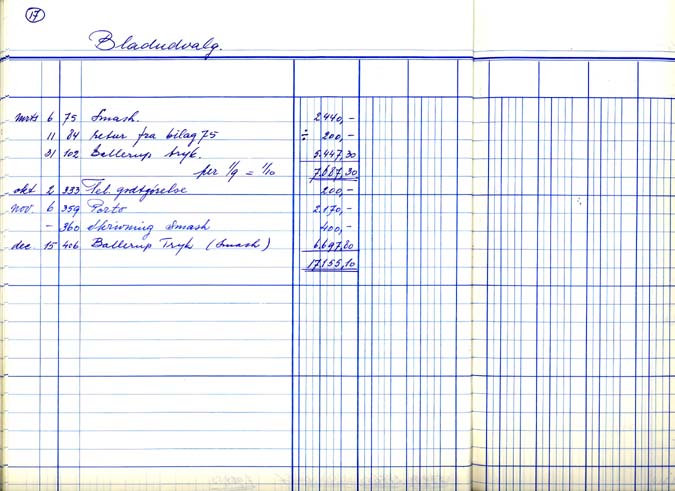 17
Bladudvalg.
mrts 6 75 Smash. 2440,-
11 84 retur fra bilag 75 ÷ 200,-
31 102 Ballerup tryk. 5.447,30
per 1/9 = 1/10 7.687,30
okt 2 333 Tel. godtgørelse 200,-
nov. 6 359 Porto 2.170,-
- 360 Skrivning Smash 400,-
dec. 15 406 Ballerup Tryk (Smash) 6.697,80
17.155,10